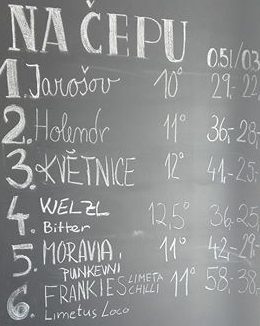 NA ČEPU
0,5l/0,3
1. Jarošov 10° 29,- 22,
2. Holendr 11° 36,- 28,-
3. KVĚTNICE 12° 41,- 25,-
4. WELZL 12,5° 36,- 25
Bitter
5. MORAVIA, 11° 42,- 29,-
PUNKEVNÍ
6. FRANKIES LIMETA CHILLI 11° 58,- 38,-
Limetus Loco